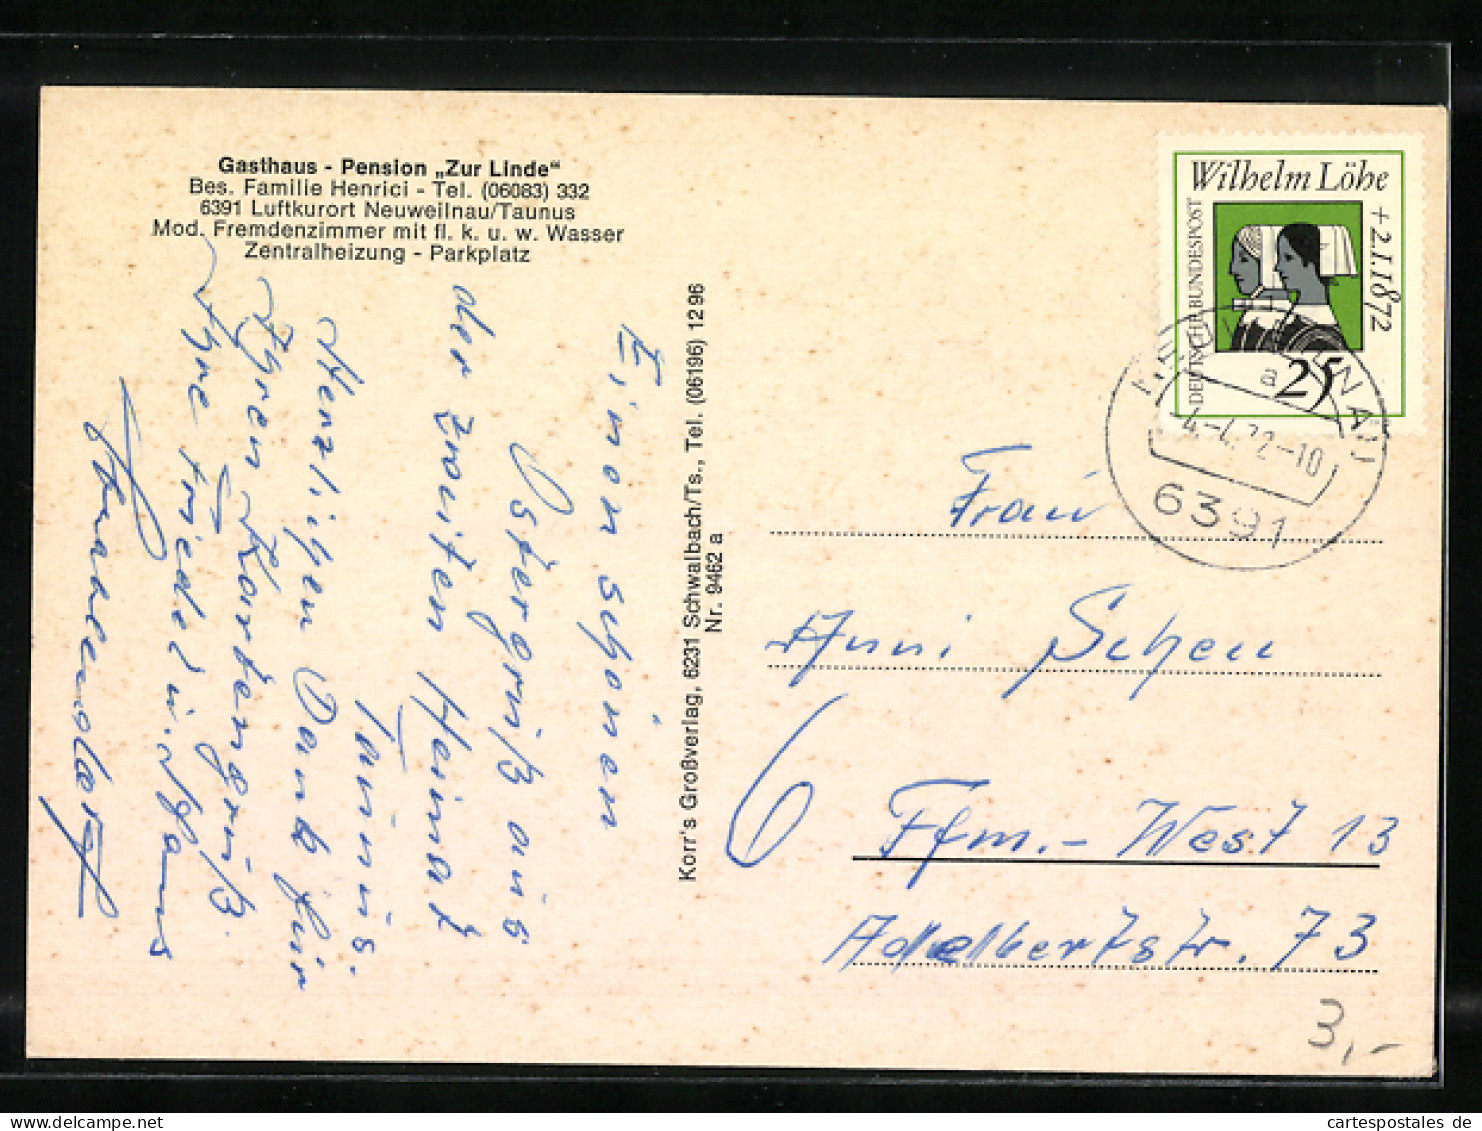 Gasthaus - Pension „Zur Linde“
Bes. Familie Henrici - Tel. (06083) 332
6391 Luftkurort Neuweilnau/Taunus
Mod. Fremdenzimmer mit fl. k. u. w. Wasser
Zentralheizung - Parkplatz
Einen schönen
Ostergruß aus
der zweiten Heimat
Taunus.
Herzlichen Dank für
Ihren Kartengruß.
Ihre Friedel u. Hans
Korr's Großverlag, 6231 Schwalbach/Ts., Tel. (06196) 1296
Nr. 9462 a
Wilhelm Löhe
+ 2.1.1872
DEUTSCHE BUNDESPOST
25
a
-4.-4.72-10
6391
Frau
Anni Scheu
6
Ffm.- West 13
Adalbertstr. 73
3,-
www.delcampe.net
cartespostales de